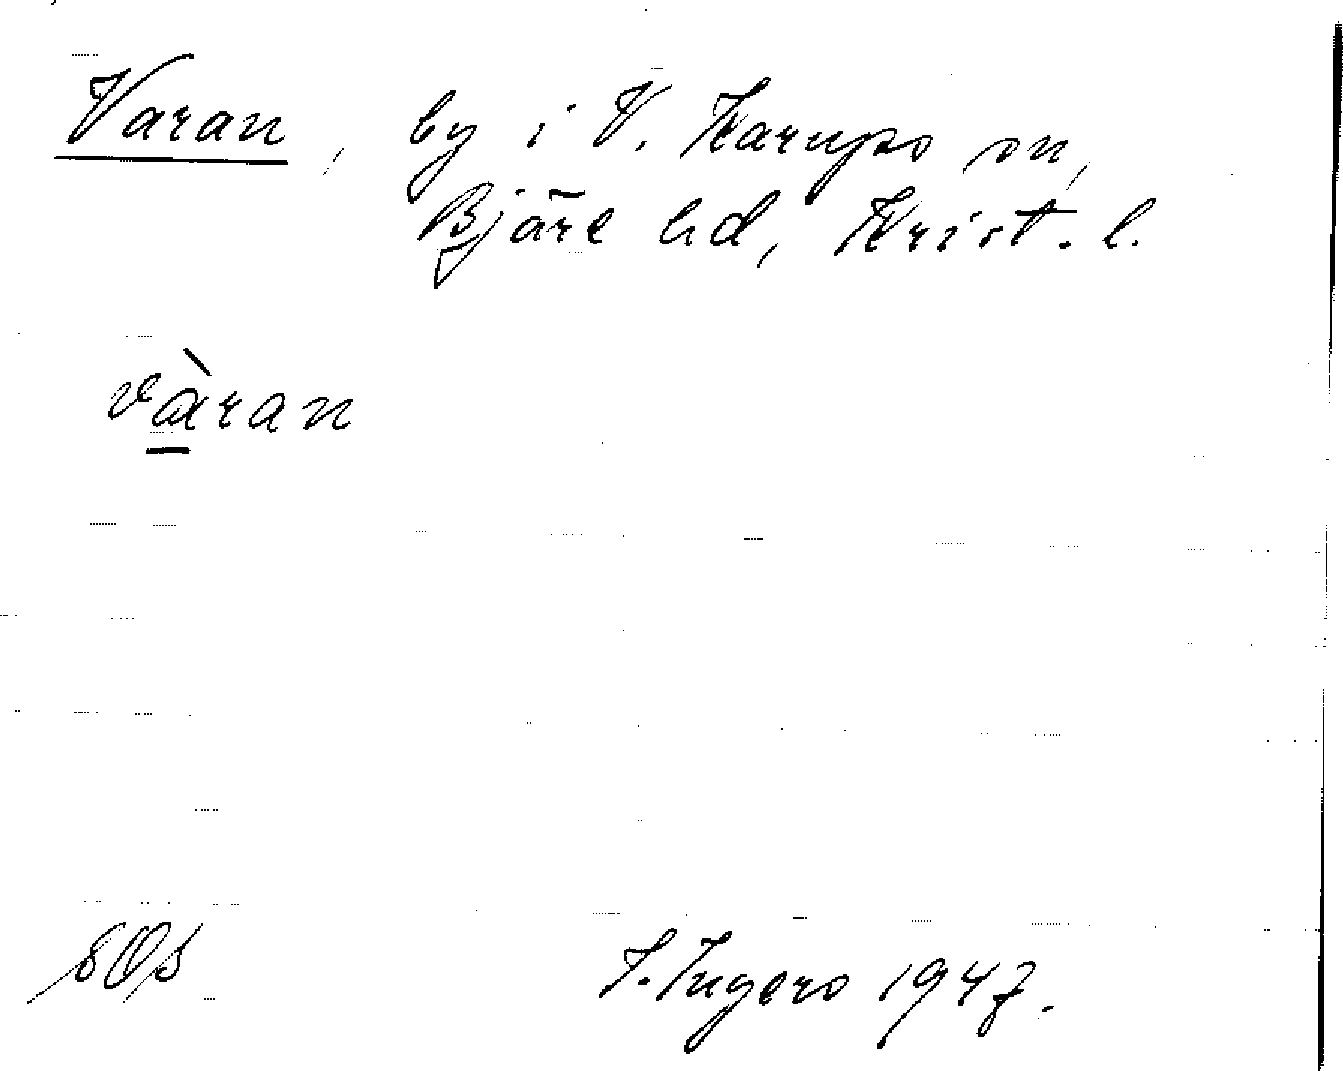 Varan, by i V. Karups sn,
Bjäre hd, Krist. l.
vàran
I. Ingers 1947.